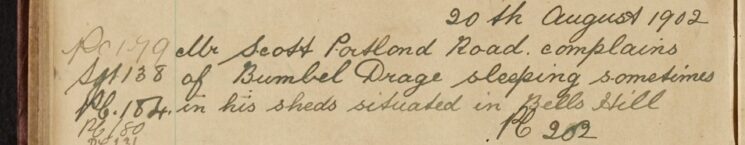 20th August 1902
PC 179 Mr Scott Portlond Road. complains
Sgt 138 of Bumbel Drage sleeping sometimes
PC. 184. in his sheds situated in Bells Hill
PC 180 PC 202
PC 131